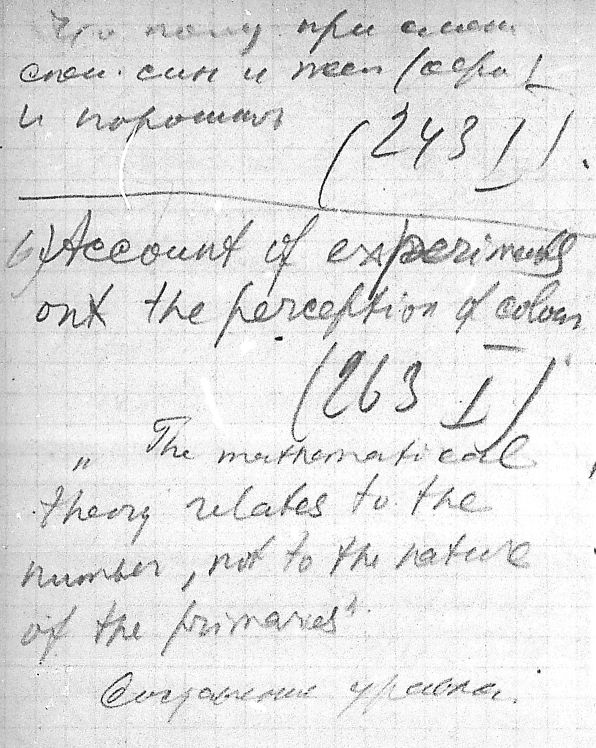 при смеш
син и жел (сера
и порошков
(243 I).
6) Account of experiments
on the perception of colour
(263 I)
„ The mathematical
theory relates to the
number, not to the nature
of the primaries"
Составление уравнен.